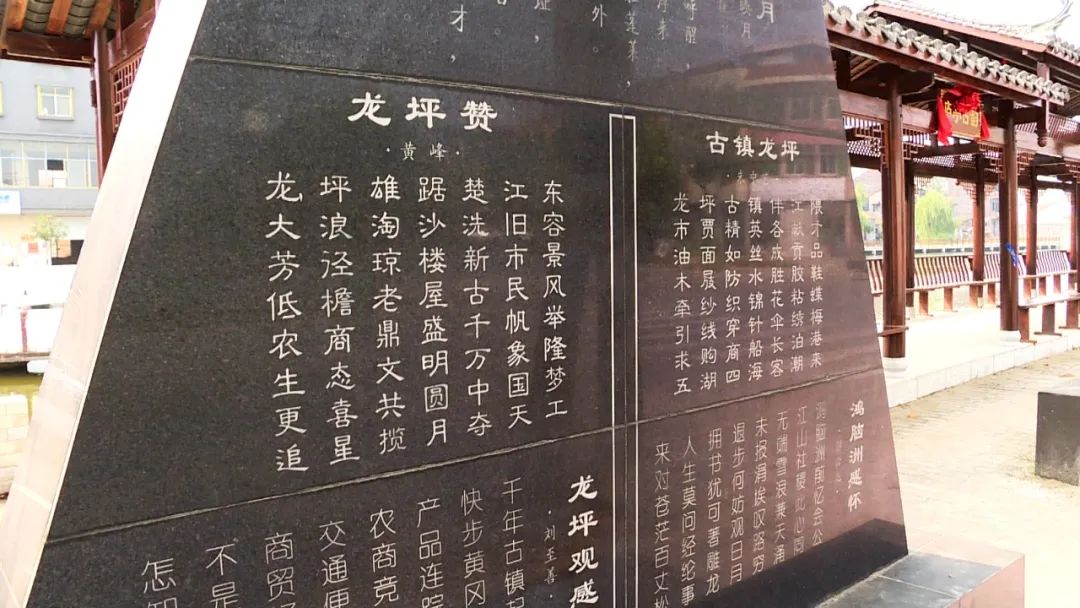 龙坪赞
·黄峰·
龙坪雄踞楚江东
大浪淘沙洗旧容
芳径琼楼新市景
低檐老屋古民风
农商鼎盛千帆举
生态文明万象隆
更喜共圆中国梦
追星揽月夺天工
古镇龙坪
龙坪古镇伴江隈
市贾精英各献才
油面如丝成贡品
木屐防水胜胶鞋
牵纱织锦花粘蝶
引线穿针伞绣梅
求购商船长泊港
五湖四海客潮来
龙坪观感
·刘至善·
千年古镇
快步黄冈
产品连
农商竞
交通便
商贸
不是
怎知
鸿脑洲感怀
鸿脑洲前忆会公
江山社稷此心同
无端雪浪兼天涌
未报涓埃叹路穷
退步何妨观日月
拥书犹可著雕龙
人生莫问经纶事
来对苍茫百丈松